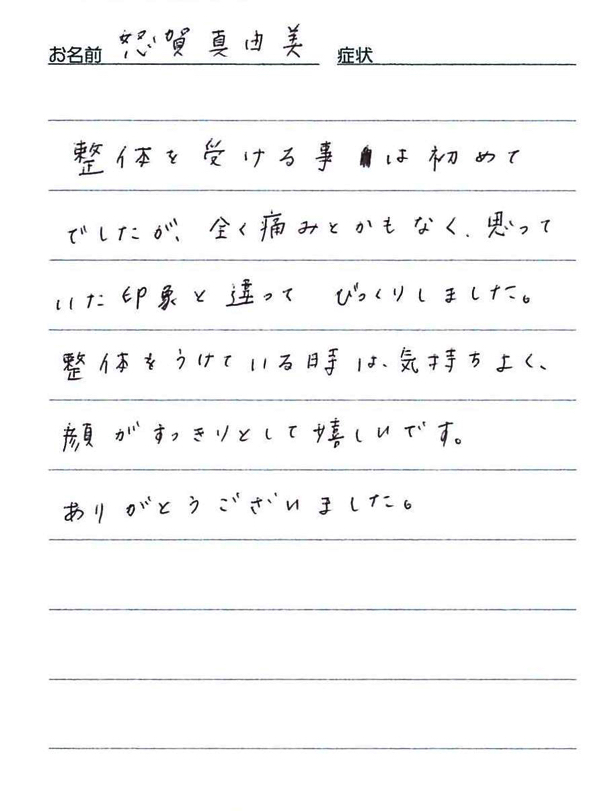 お名前 怒賀 真由美 症状
整体を受ける事は初めて
でしたが、全く痛みとかもなく、思って
いた印象と違って びっくりしました。
整体をうけている時は、気持ちよく、
顔がすっきりとして嬉しいです。
ありがとうございました。